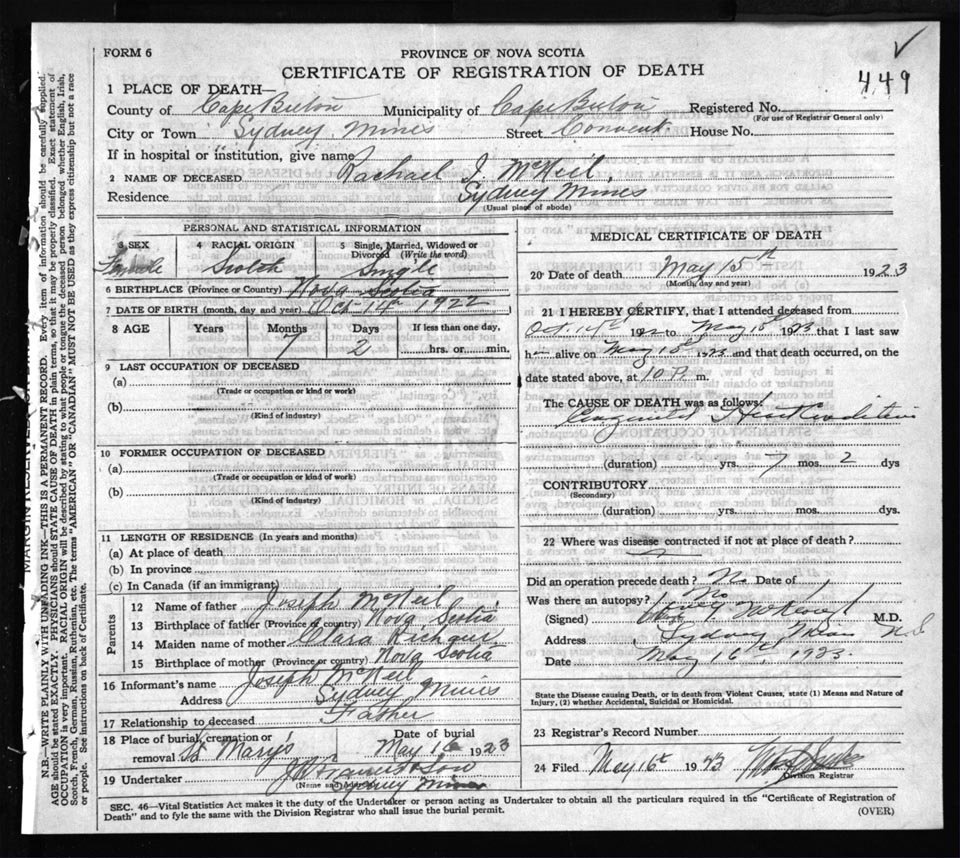 FORM 6
PROVINCE OF NOVA SCOTIA
CERTIFICATE OF REGISTRATION OF DEATH
449
1 PLACE OF DEATH—
County of Cape Breton Municipality of Cape Breton Registered No.
(For use of Registrar General only)
City or Town Sydney Mines Street Convent House No.
If in hospital or institution, give name
2 NAME OF DECEASED Rachael J. McNeil
Residence Sydney Mines
(Usual place of abode)
PERSONAL AND STATISTICAL INFORMATION
3 SEX 4 RACIAL ORIGIN 5 Single, Married, Widowed or
Divorced (Write the word)
Female Scotch Single
6 BIRTHPLACE (Province or Country) Nova Scotia
7 DATE OF BIRTH (month, day and year) Oct 14th 1922
8 AGE Years Months Days If less than one day,
7 2 hrs. or min.
9 LAST OCCUPATION OF DECEASED
(a)
(Trade or occupation or kind or work)
(b)
(Kind of industry)
10 FORMER OCCUPATION OF DECEASED
(a)
(Trade or occupation or kind or work)
(b)
(Kind of industry)
11 LENGTH OF RESIDENCE (In years and months)
(a) At place of death
(b) In province
(c) In Canada (if an immigrant)
Parents
12 Name of father Joseph McNeil
13 Birthplace of father (Province or country) Nova Scotia
14 Maiden name of mother Clara
15 Birthplace of mother (Province or country) Nova Scotia
16 Informant's name Joseph McNeil
Address Sydney Mines
17 Relationship to deceased Father
18 Place of burial, cremation or Date of burial
removal St Mary's May 16 1923
19 Undertaker & Son
(Name and Sydney Mines
MEDICAL CERTIFICATE OF DEATH
20 Date of death May 15th 1923
(Month, day and year)
21 I HEREBY CERTIFY, that I attended deceased from
Oct. 14th to May 15th 1923 that I last saw
h alive on May 15th 1923 and that death occurred, on the
date stated above, at 10 P. m.
The CAUSE OF DEATH was as follows:
Congenital Heart
(duration) yrs. 7 mos. 2 dys
CONTRIBUTORY
(Secondary)
(duration) yrs. mos. dys.
22 Where was disease contracted if not at place of death?
Did an operation precede death? No Date of
Was there an autopsy? No
(Signed) M.D.
Address Sydney Mines N.S.
Date May 16th, 1923.
State the Disease causing Death, or in death from Violent Causes, state (1) Means and Nature of
Injury, (2) whether Accidental, Suicidal or Homicidal.
23 Registrar's Record Number
24 Filed May 16th 1923
Division Registrar
SEC. 46—Vital Statistics Act makes it the duty of the Undertaker or person acting as Undertaker to obtain all the particulars required in the "Certificate of Registration of
Death" and to fyle the same with the Division Registrar who shall issue the burial permit. (OVER)
N.B.—WRITE PLAINLY WITH UNFADING INK—THIS IS A PERMANENT RECORD. Every item of information should be carefully supplied.
AGE should be stated EXACTLY. PHYSICIANS should STATE CAUSE OF DEATH in plain terms, so that it may be properly classified. Exact statement of
OCCUPATION is very important. RACIAL ORIGIN will be described by stating to what people or tongue the deceased person belonged whether English, Irish,
Scotch, French, German, Russian, Ruthenian, etc. The terms "AMERICAN" OR "CANADIAN" MUST NOT BE USED as they express citizenship but not a race
or people. See instructions on back of Certificate.